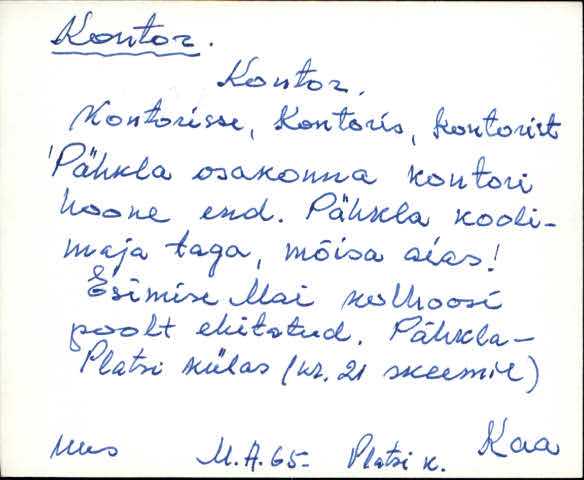 Kontor.
Kontor.
Kontorisse, Kontoris, kontorist
Pähkla osakonna kontori
hoone end. Pähkla kooli-
maja taga, mõisa aias!
Esimise Mai kolhoosi
poolt ehitatud. Pähkla-
Platsi külas (nr. 21 skeemil)
uus M.A.65- Platsi k. Kaa